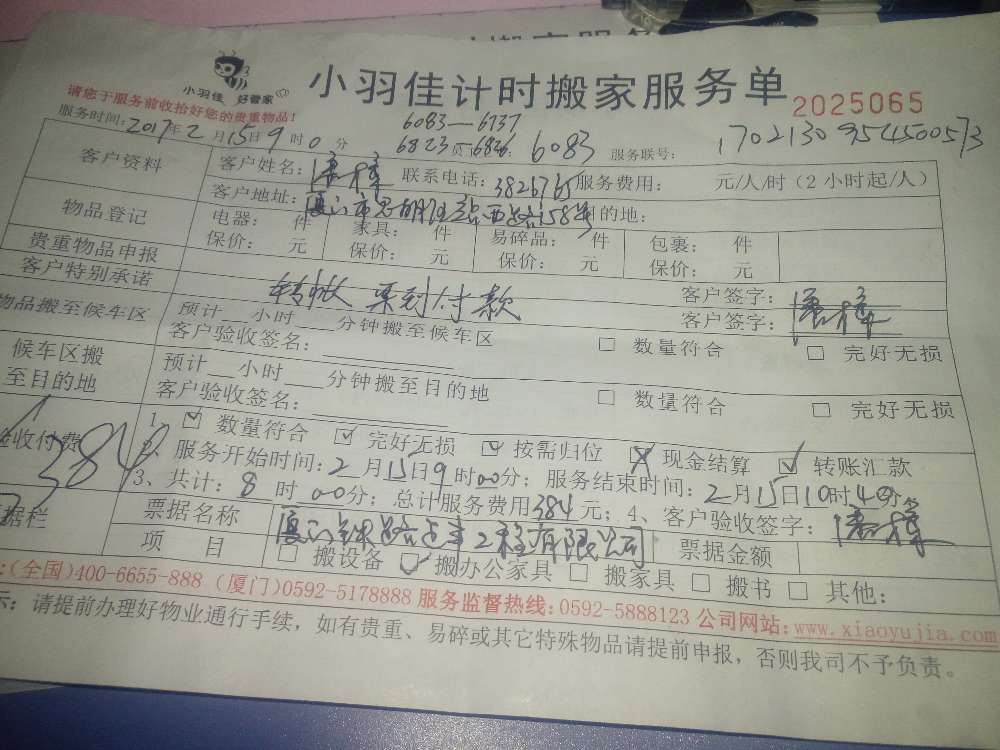 小羽佳 好管家
小羽佳计时搬家服务单 2025065
请您于服务前收拾好您的贵重物品!
6083—6137
服务时间:2017年2月15日9时0分 6823页6826: 6083 服务联号: 1702130954500573
客户资料 客户姓名: 联系电话:3826765 服务费用: 元/人/时(2小时起/人)
客户地址:厦门市思明区站西路158号 目的地:
物品登记 电器: 件 家具: 件 易碎品: 件 包裹: 件
保价: 元 保价: 元 保价: 元 保价: 元
贵重物品申报
客户特别承诺 转帐 票到付款 客户签字:
物品搬至候车区 预计__小时__分钟搬至候车区 客户签字:
客户验收签名: □ 数量符合 □ 完好无损
候车区搬至目的地 预计__小时__分钟搬至目的地
客户验收签名: □ 数量符合 □ 完好无损
验收付费 1、☑ 数量符合 ☑ 完好无损 ☑ 按需归位 现金结算 ☑ 转账汇款
384
2、服务开始时间:2月15日9时00分; 服务结束时间:2月15日10时40分
3、共计:8时00分; 总计服务费用384元; 4、客户验收签字:
据栏 票据名称 厦门铁路建工程有限公司 票据金额
项目 □ 搬设备 ☑ 搬办公家具 □ 搬家具 □ 搬书 □ 其他:
:(全国)400-6655-888 (厦门)0592-5178888 服务监督热线:0592-5888123 公司网站:www.xiaoyujia.com
示: 请提前办理好物业通行手续, 如有贵重、易碎或其它特殊物品请提前申报, 否则我司不予负责。